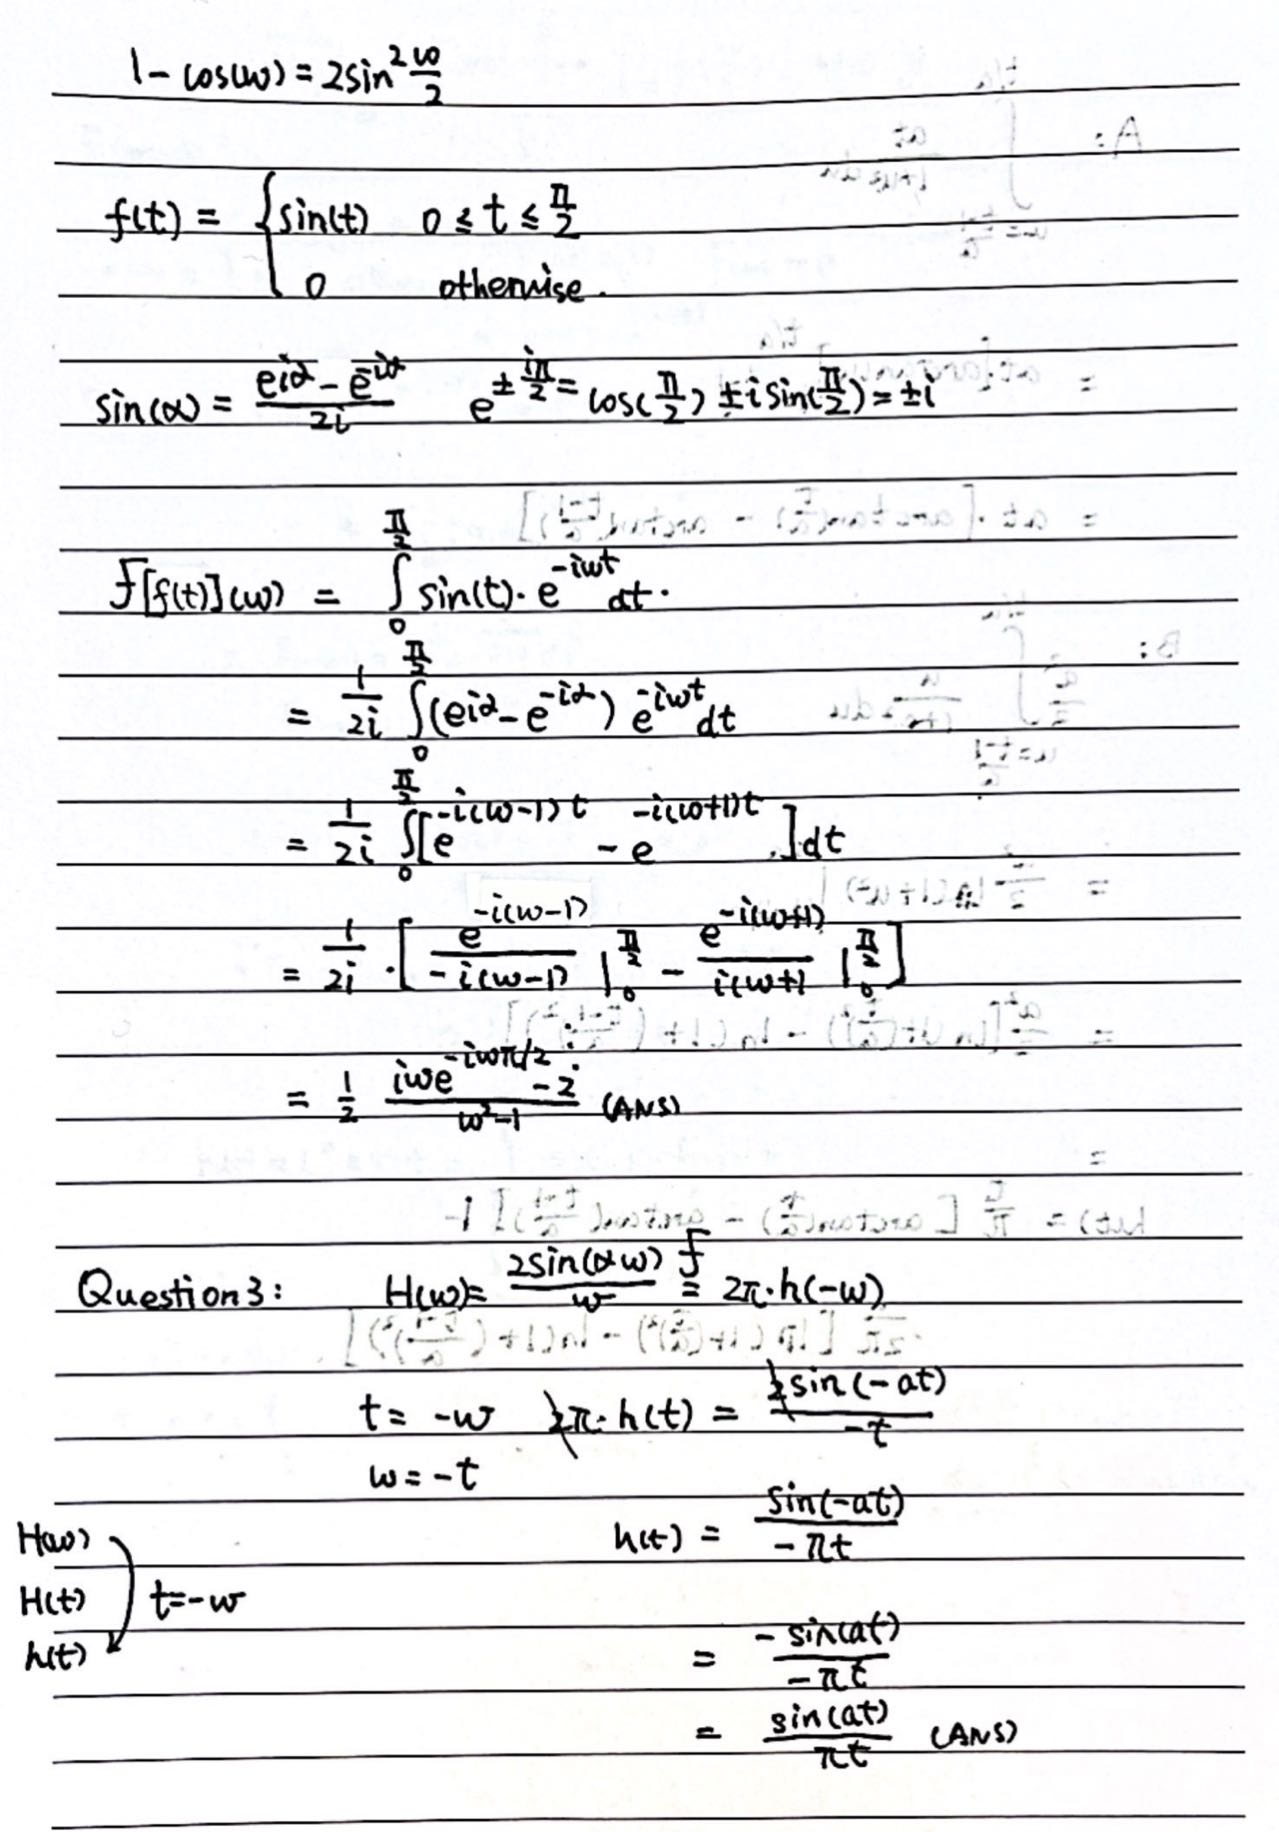 1 - cos(ω) = 2sin² ω/2
f(t) = { sin(t) 0 ≤ t ≤ π/2
0 otherwise.
sin(α) = (e^{iα} - e^{-iα})/2i e^{± iπ/2} = cos(π/2) ± i sin(π/2) = ±i
F[f(t)](ω) = ∫_0^{π/2} sin(t) · e^{-iωt} dt.
= 1/2i ∫_0^{π/2} (e^{iα} - e^{-iα}) e^{-iωt} dt
= 1/2i ∫_0^{π/2} [e^{-i(ω-1)t} - e^{-i(ω+1)t}] dt
= 1/2i · [ e^{-i(ω-1)}/(-i(ω-1)) |_0^{π/2} - e^{-i(ω+1)}/(i(ω+1 |_0^{π/2} ]
= 1/2 (iωe^{-iωπ/2} - 2)/(ω²-1) (ANS)
Question 3: H(ω) = 2sin(αω)/ω F= 2π · h(-ω)
t = -ω 2π · h(t) = 2sin(-at)/-t
ω = -t
h(t) = sin(-at)/-πt
H(ω)
H(t) t=-ω
h(t)
= -sin(at)/-πt
= sin(at)/πt (ANS)